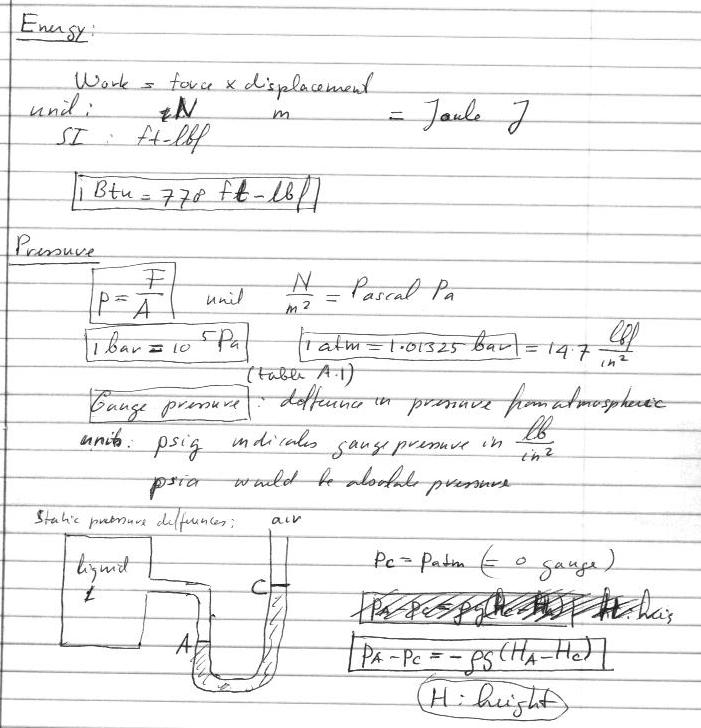 Energy:
Work = force x displacement
unit: N m = Joule J
SI : ft-lbf
1 Btu = 778 ft-lbf
Pressure
P = F/A unit N/m² = Pascal Pa
1 bar = 10⁵ Pa 1 atm = 1.01325 bar = 14.7 lbf/in²
(table A.1)
Gauge pressure : difference in pressure from atmospheric
units: psig indicates gauge pressure in lb/in²
psia would be absolute pressure
Static pressure differences: air
liquid
1
C
A
Pc = Patm (= 0 gauge)
PA - Pc = -ρg (HA - Hc)
H : height